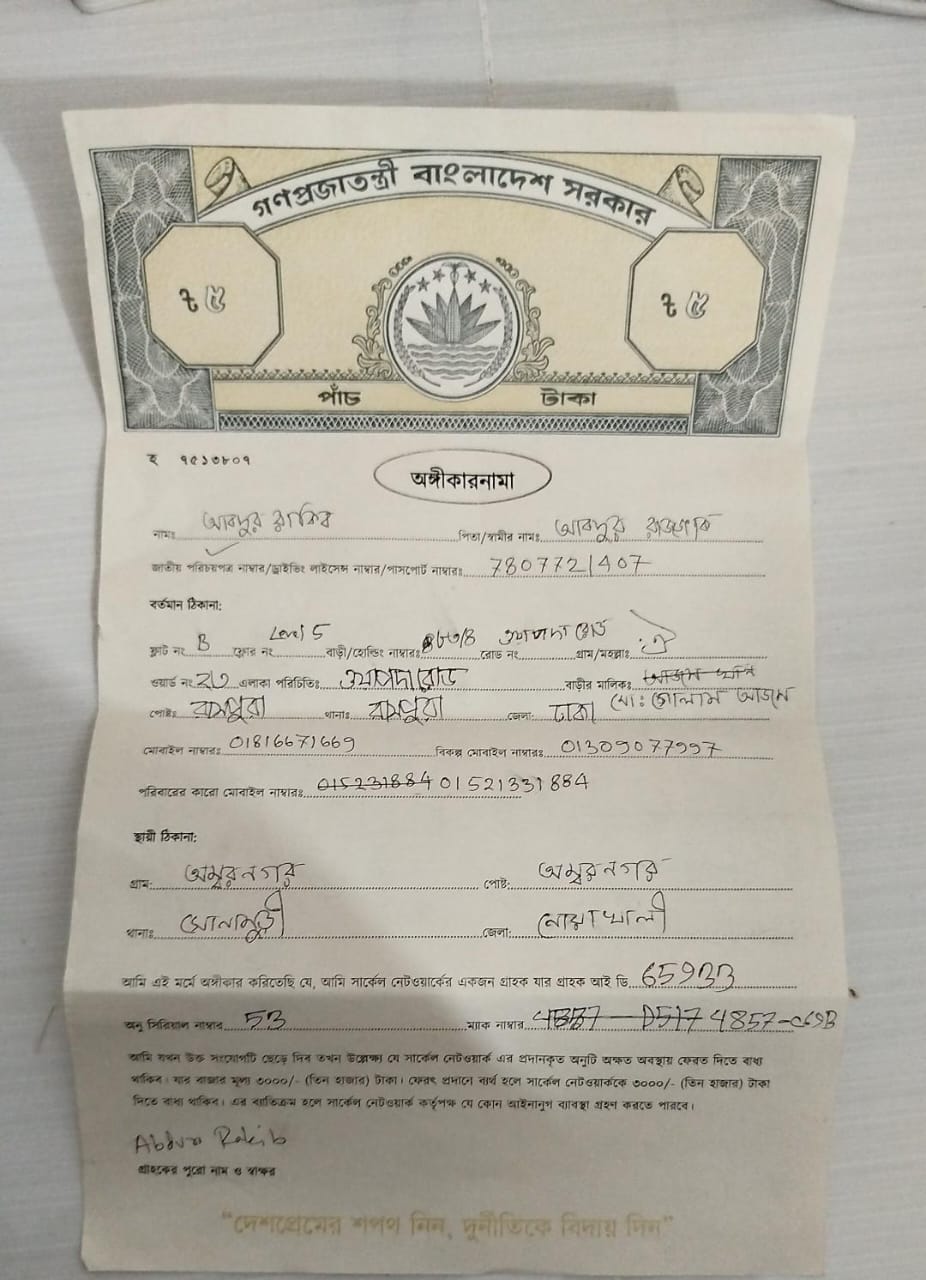 গণপ্রজাতন্ত্রী বাংলাদেশ সরকার
৳ ৫ ৳ ৫
পাঁচ টাকা
হ ৭৫১৩৮০৭
অঙ্গীকারনামা
নামঃ আবদুর রাকিব পিতা/স্বামীর নামঃ আবদুর
জাতীয় পরিচয়পত্র নাম্বার/ড্রাইভিং লাইসেন্স নাম্বার/পাসপোর্ট নাম্বারঃ 7807721407
বর্তমান ঠিকানা:
ফ্লাট নং B ফ্লোর নং Level 5 বাড়ী/হোল্ডিং নাম্বারঃ রোড নং গ্রাম/মহল্লাঃ ঐ
ওয়ার্ড নং ২৩ এলাকা পরিচিতিঃ ওয়াপদা রোড বাড়ীর মালিকঃ মো: গোলাম আজম
পোষ্টঃ রামপুরা থানাঃ রামপুরা জেলা: ঢাকা
মোবাইল নাম্বারঃ 01816671669 বিকল্প মোবাইল নাম্বারঃ 01309077997
পরিবারের কারো মোবাইল নাম্বারঃ 015231884 01521331884
স্থায়ী ঠিকানা:
গ্রাম: অম্বরনগর পোষ্ট: অম্বরনগর
থানাঃ সোনামুড়ী জেলা: নোয়াখালী
আমি এই মর্মে অঙ্গীকার করিতেছি যে, আমি সার্কেল নেটওয়ার্কের একজন গ্রাহক যার গ্রাহক আই ডি 65933
অনু সিরিয়াল নাম্বার 53 ম্যাক নাম্বার 4857-C69B
আমি যখন উক্ত সংযোগটি ছেড়ে দিব তখন উল্লেক্ষ্য যে সার্কেল নেটওয়ার্ক এর প্রদানকৃত অনুটি অক্ষত অবস্থায় ফেরত দিতে বাধ্য
থাকিব। যার বাজার মূল্য ৩০০০/- (তিন হাজার) টাকা। ফেরৎ প্রদানে ব্যর্থ হলে সার্কেল নেটওয়ার্ককে ৩০০০/- (তিন হাজার) টাকা
দিতে বাধ্য থাকিব। এর ব্যতিক্রম হলে সার্কেল নেটওয়ার্ক কর্তৃপক্ষ যে কোন আইনানুগ ব্যাবস্থা গ্রহণ করতে পারবে।
Abdur Rakib
গ্রাহকের পুরো নাম ও স্বাক্ষর
“দেশপ্রেমের শপথ নিন, দুর্নীতিকে বিদায় দিন”